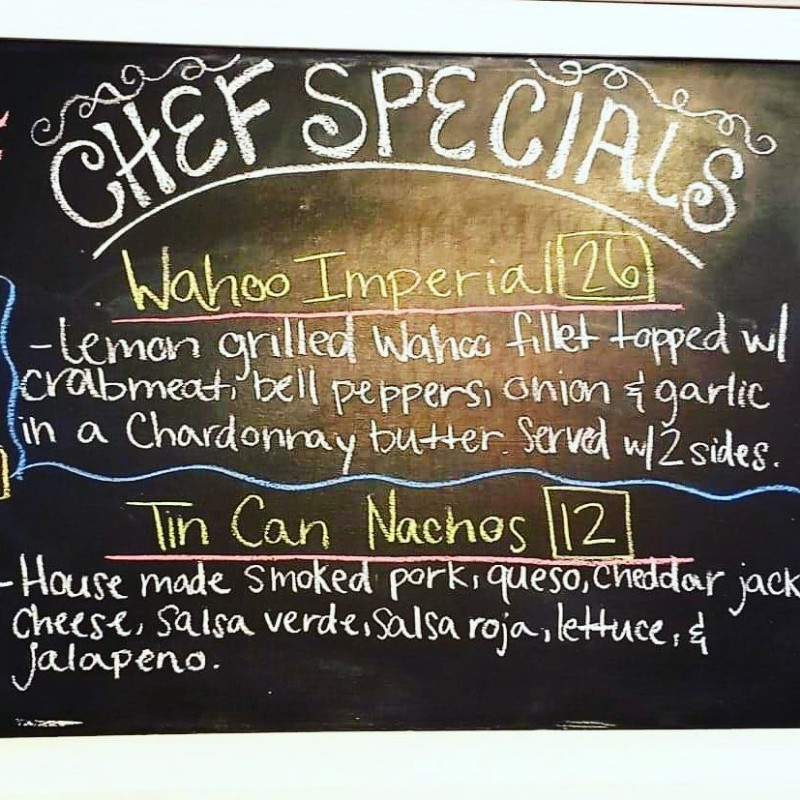 CHEF SPECIALS
Wahoo Imperial 26
-Lemon grilled Wahoo fillet topped w/
crabmeat, bell peppers, onion & garlic
in a Chardonnay butter. Served w/2 sides.
Tin Can Nachos 12
-House made smoked pork, queso, cheddar jack
cheese, salsa verde, salsa roja, lettuce, &
jalapeno.